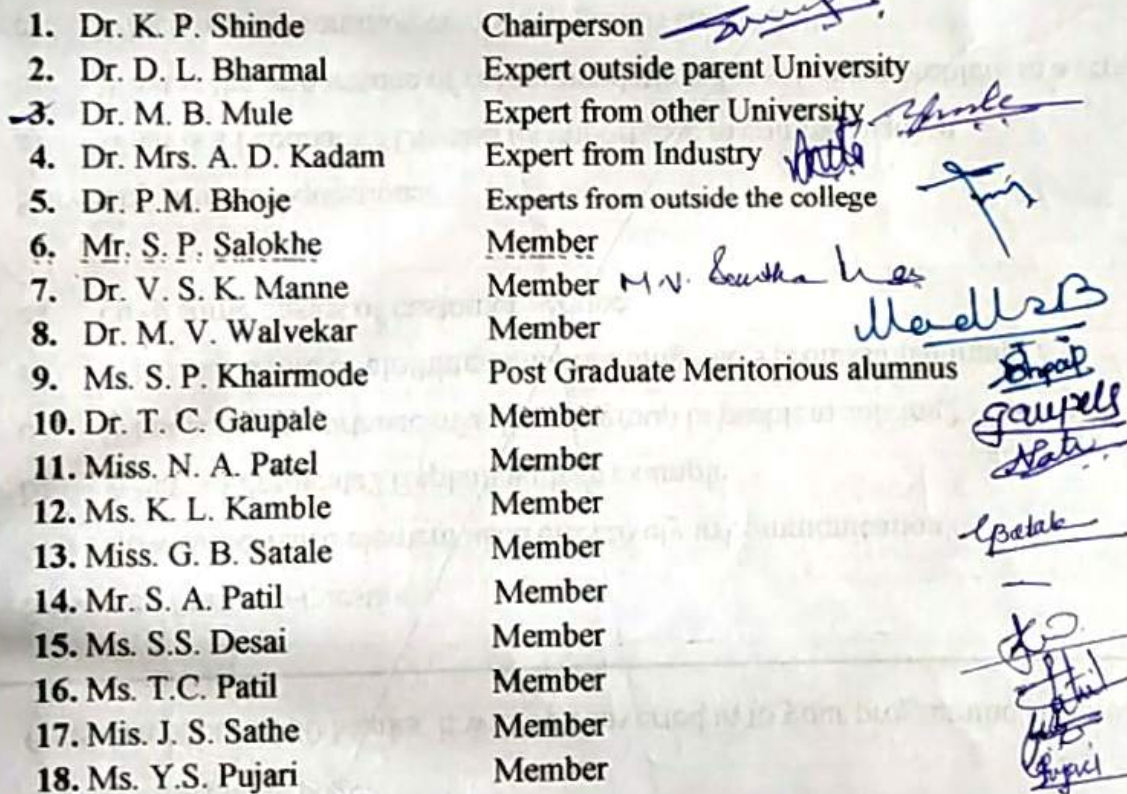 1. Dr. K. P. Shinde Chairperson
2. Dr. D. L. Bharmal Expert outside parent University
3. Dr. M. B. Mule Expert from other University
4. Dr. Mrs. A. D. Kadam Expert from Industry
5. Dr. P.M. Bhoje Experts from outside the college
6. Mr. S. P. Salokhe Member
7. Dr. V. S. K. Manne Member M.V.
8. Dr. M. V. Walvekar Member
9. Ms. S.P. Khairmode Post Graduate Meritorious alumnus
10. Dr. T. C. Gaupale Member
11. Miss. N. A. Patel Member
12. Ms. K. L. Kamble Member
13. Miss. G. B. Satale Member
14. Mr. S. A. Patil Member
15. Ms. S.S. Desai Member
16. Ms. T.C. Patil Member
17. Mis. J. S. Sathe Member
18. Ms. Y.S. Pujari Member